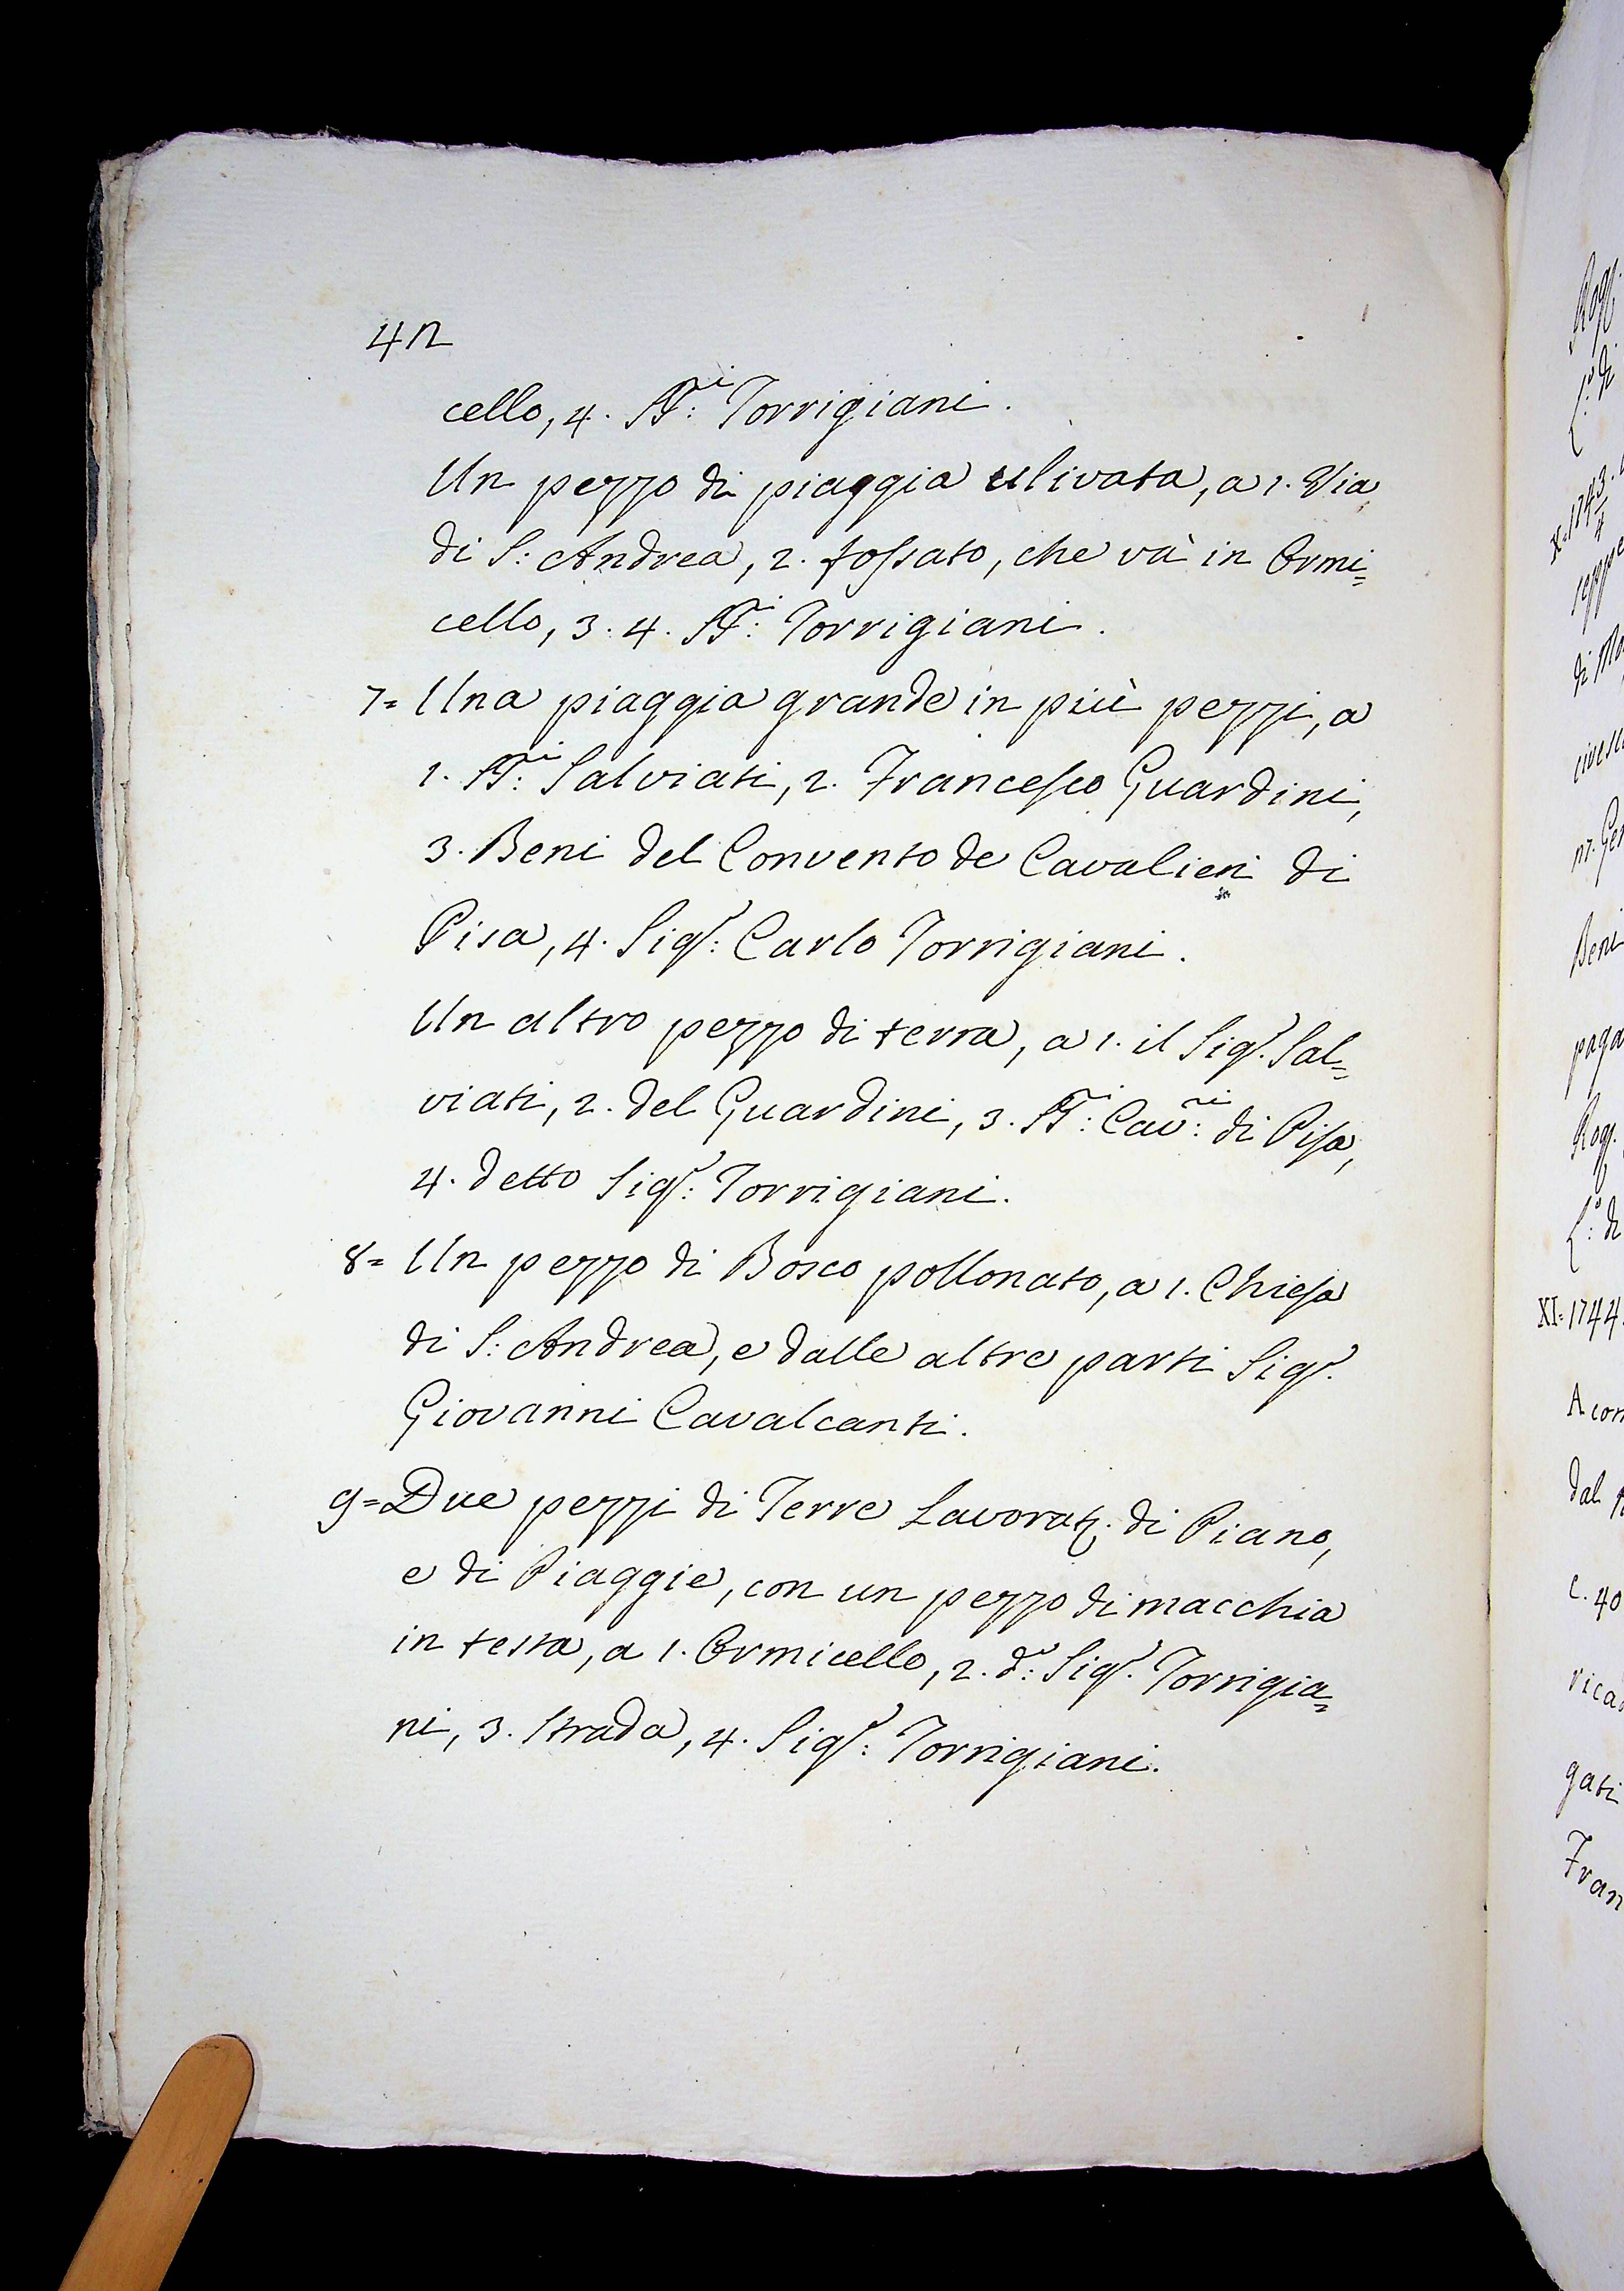 42
cello, 4. SS.ri: Torrigiani.
Un pezzo di piaggia ulivata, a 1. Via
di S: Andrea, 2. fossato, che và in Ormi=
cello, 3. 4. SS.ri: Torrigiani.
7= Una piaggia grande in più pezzi, a
1. SS.ri: Salviati, 2. Francesco Guardini,
3. Beni del Convento de Cavalieri di
Pisa, 4. Sigr: Carlo Torrigiani.
Un altro pezzo di terra, a 1. il Sigr. Sal=
viati, 2. del Guardini, 3. SS.ri: Cavri: di Pisa,
4. detto Sigr: Torrigiani.
8= Un pezzo di Bosco pollonato, a 1. Chiesa
di S: Andrea, e dalle altre parti Sigr.
Giovanni Cavalcanti.
9= Due pezzi di Terre Lavorat. di Piano,
e di Piaggie, con un pezzo di macchia
in testa, a 1. Ormicello, 2. do: Sigr. Torrigia=
ni, 3. strada, 4. Sigr: Torrigiani.
X=1743
4
di
Beni
paga
XI=1744.
A con
dal
c. 40
rica
gati
Fran